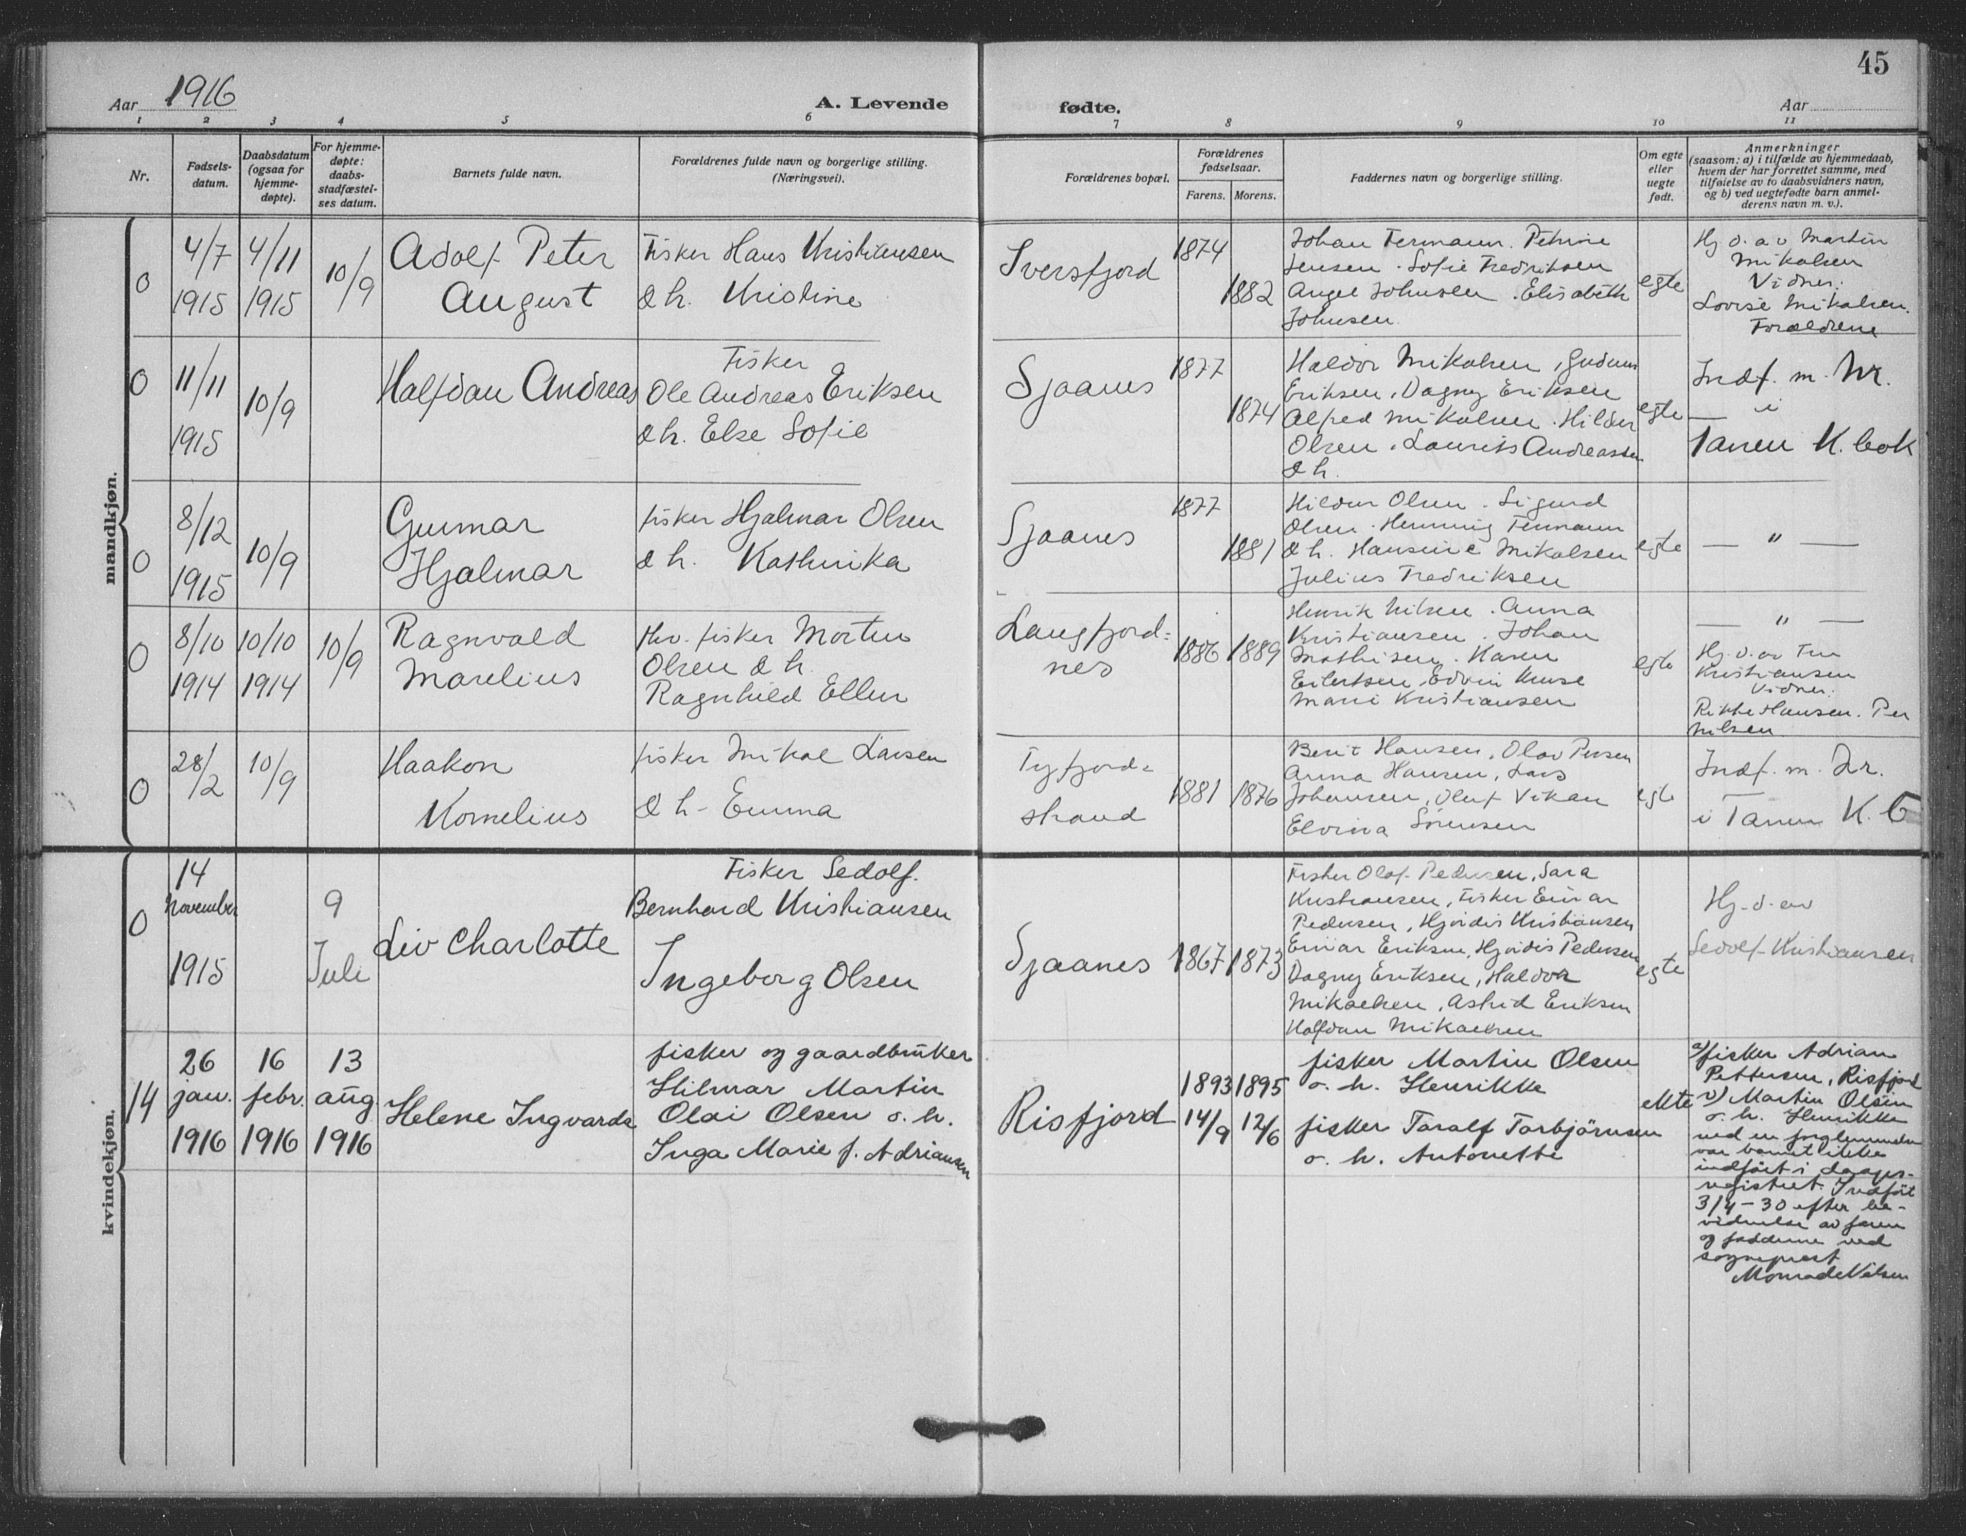 45
Aar 1916
A. Levende
fødte.
Aar
1 2 3 4 5 6 7 8 9 10 11
Nr.
Fødsels-
datum.
Daabsdatum
(ogsaa for
hjemme-
døpte).
For hjemme-
døpte:
daabs-
stadfæstel-
ses datum.
Barnets fulde navn.
Forældrenes fulde navn og borgerlige stilling.
(Næringsvei).
Forældrenes bopæl.
Forældrenes
fødselsaar.
Farens. Morens.
Faddernes navn og borgerlige stilling.
Om egte
eller
uegte
født.
Anmerkninger
(saasom: a) i tilfælde av hjemmedaab,
hvem der har forrettet samme, med
tilføielse av to daabsvidners navn,
og b) ved uegtefødte barn anmel-
derens navn m. v.).
mandkjøn.
0
4/7
1915
4/11
1915
10/9
Adolf Peter
August
Fisker Hans Kristiansen
& h. Kristine
Iversfjord
1874
1882
Johan Fermann. Petrine
Jensen. Sofie Fredriksen
Angel Johnsen. Elisabeth
Johnsen
egte
Hj. d. av Martin
Mikalsen
Vidner:
Lovise Mikalsen.
Forældrene
0
11/11
1915
10/9
Halfdan Andreas
Fisker
Ole Andreas Eriksen
& h. Else Sofie
Sjaanes
1877
1874
Haldor Mikalsen, Gudrun
Eriksen, Dagny Eriksen
Alfred Mikalsen. Hildur
Olsen. Laurits Andreassen
& h.
egte
Indf. m. Nr.
— i
Tanen K. bok
0
8/12
1915
10/9
Gunnar
Hjalmar
fisker Hjalmar Olsen
& h. Kathinka
Sjaanes
1877
1881
Hildur Olsen. Sigurd
Olsen. Henning Fermann
& h. Hansine Mikalsen
Julius Fredriksen
egte
— " —
0
8/10
1914
10/10
1914
10/9
Ragnvald
Marelius
fhv. fisker Morten
Olsen & h.
Ragnhild Ellen
Langfjord=
nes
1886
1889
Henrik Nilsen. Anna
Kristiansen. Johan
Mathisen. Karen
Eilertsen, Edvin Kruse
Marie Kristiansen
egte
— " —
Hj. d. av Fru
Kristiansen
Vidner:
Rikke Hansen. Per
Nilsen
0
28/2
10/9
Haakon
Kornelius
fisker Mikal Larsen
& h - Emma
Tyfjord=
strand
1881
1876
Berit Hansen, Olav Persen
Anna Hansen, Lars
Johansen, Oluf Vikan
Elvina Sørensen
egte
Indf. m. Nr.
i Tanen K. b
kvindekjøn.
0
14
November
1915
9
Juli
Liv Charlotte
Fisker Sedolf.
Bernhard Kristiansen
Ingeborg Olsen
Sjaanes
1867
1873
Fisker Olaf Pedersen, Sara
Kristiansen, Fisker Einar
Pedersen, Hjørdis Kristiansen
Einar Eriksen, Hjørdis Pedersen
Dagny Eriksen, Haldor
Mikaelsen, Astrid Eriksen
Halfdan Mikaelsen
egte
Hj. d. av
Sedolf Kristiansen
14
26
jan.
1916
16
febr.
1916
13
aug
1916
Helene Ingvarda
fisker og gaardbruker
Hilmar Martin
Olai Olsen o. h.
Inga Marie f. Adriansen
Risfjord
1893
14/9
1895
12/6
fisker Martin Olsen
o. h. Henrikke
fisker Taralf Torbjørnsen
o. h. Antonette
ekte
a) fisker Adrian
Pettersen, Risfjord
v) Martin Olsen
o. h. Henrikke
ved en forglemmelse
var barnet ikke
indført i daaps-
registret. Indført
3/4-30 efter be-
vidnelse av faren
og fadderne ved
sogneprest
Monrad Nilsen